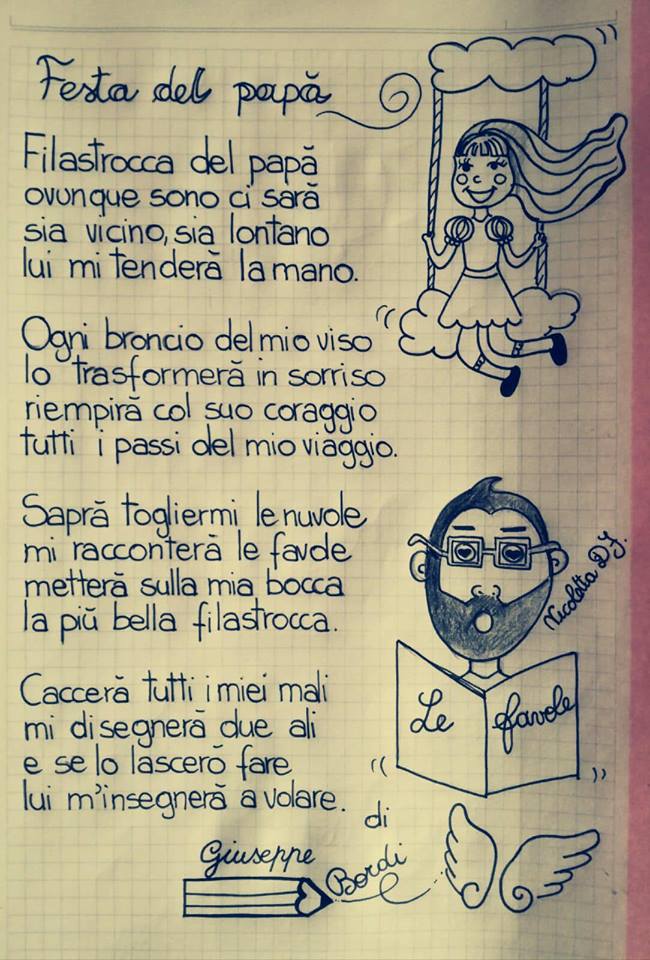 Festa del papà
Filastrocca del papà
ovunque sono ci sarà
sia vicino, sia lontano
lui mi tenderà la mano.
Ogni broncio del mio viso
lo trasformerà in sorriso
riempirà col suo coraggio
tutti i passi del mio viaggio.
Saprà togliermi le nuvole
mi racconterà le favole
metterà sulla mia bocca
la più bella filastrocca.
Caccerà tutti i miei mali
mi disegnerà due ali
e se lo lascerò fare
lui m'insegnerà a volare.
di
Giuseppe
Bordi
Le favole
Nicoletta D.J.